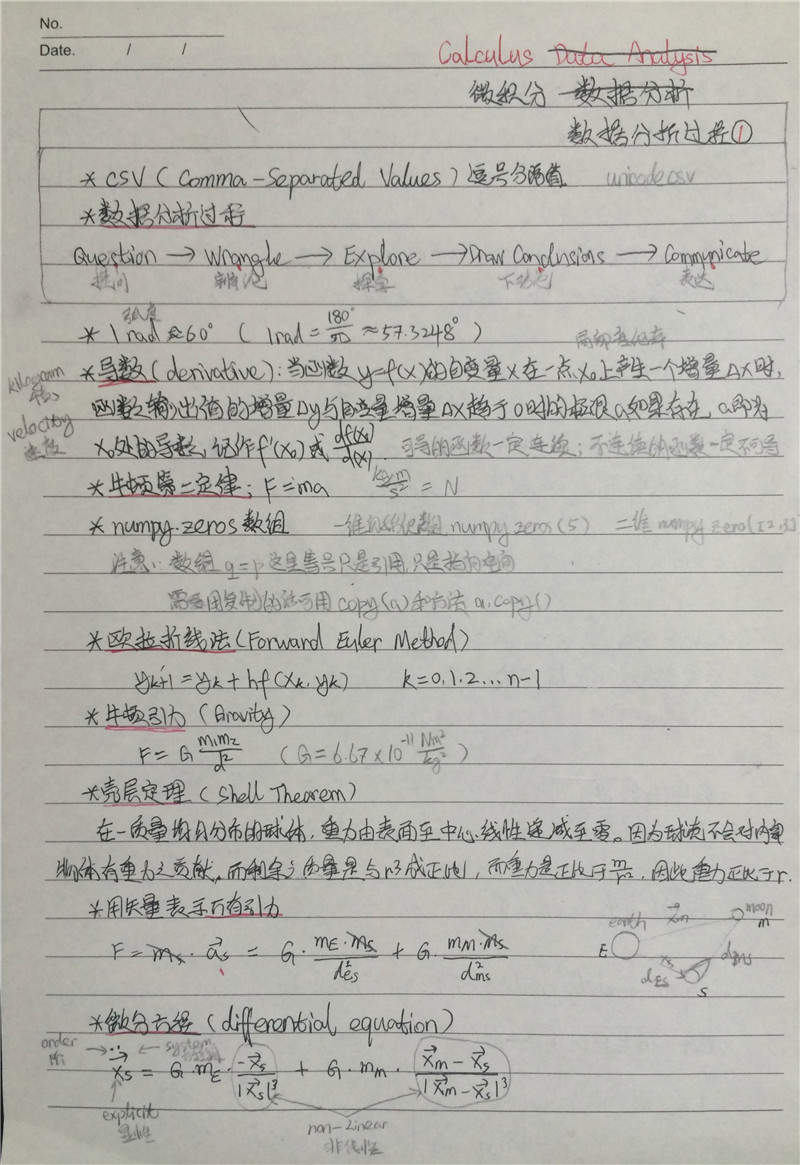 No.
Date. / /
Calculus Data Analysis
微积分 数据分析
数据分析过程①
* CSV ( Comma-Separated Values ) 逗号分隔值 unicodecsv
* 数据分析过程
Question → Wrangle → Explore → Draw Conclusions → Communicate
提问 探索 下结论 表达
弧度
* 1 rad ≈ 60° ( 1rad = 180°/π ≈ 57.3248° )
* 导数 (derivative) : 当函数 y=f(x) 的自变量 x 在一点 x₀ 上产生一个增量 Δx 时,
kilogram
函数输出值的增量 Δy 与自变量增量 Δx 趋于 0 时的极限 a 如果存在, a 即为
velocity
速度
x₀ 处的导数, 记作 f'(x₀) 或 df(x₀)/d(x). 可导的函数一定连续; 不连续的函数一定不可导
* 牛顿第二定律: F=ma kg·m/s² = N
* numpy.zeros 数组 一维 numpy zeros(5) 二维 numpy
注意: 数组 q=p 这里等号只是引用 只是指向空间
需要用复制的话可用 copy(a) 和方法 a.copy()
* 欧拉折线法 (Forward Euler Method)
yk+1 = yk + hf(xk, yk) k=0,1,2...n-1
* 牛顿引力 (Gravity)
F = G m₁m₂/d² ( G = 6.67×10⁻¹¹ Nm²/kg² )
* 壳层定理 ( Shell Theorem )
在一质量均匀分布的球体, 重力由表面至中心线性递减至零。因为球壳不会对内部
物体有重力之贡献, 而剩余之质量是与 r³ 成正比, 而重力是正比于 m/r², 因此重力正比于 r.
* 用矢量表示万有引力
earth moon
E m
F = ms · as = G · mE·ms/d²es + G · mm·ms/d²ms
dEs dms
s
* 微分方程 (differential equation)
order
阶
system
xs = G·mE · -xs/|xs|³ + G·mm · xm - xs/|xm - xs|³
explicit
显性
non-linear
非线性